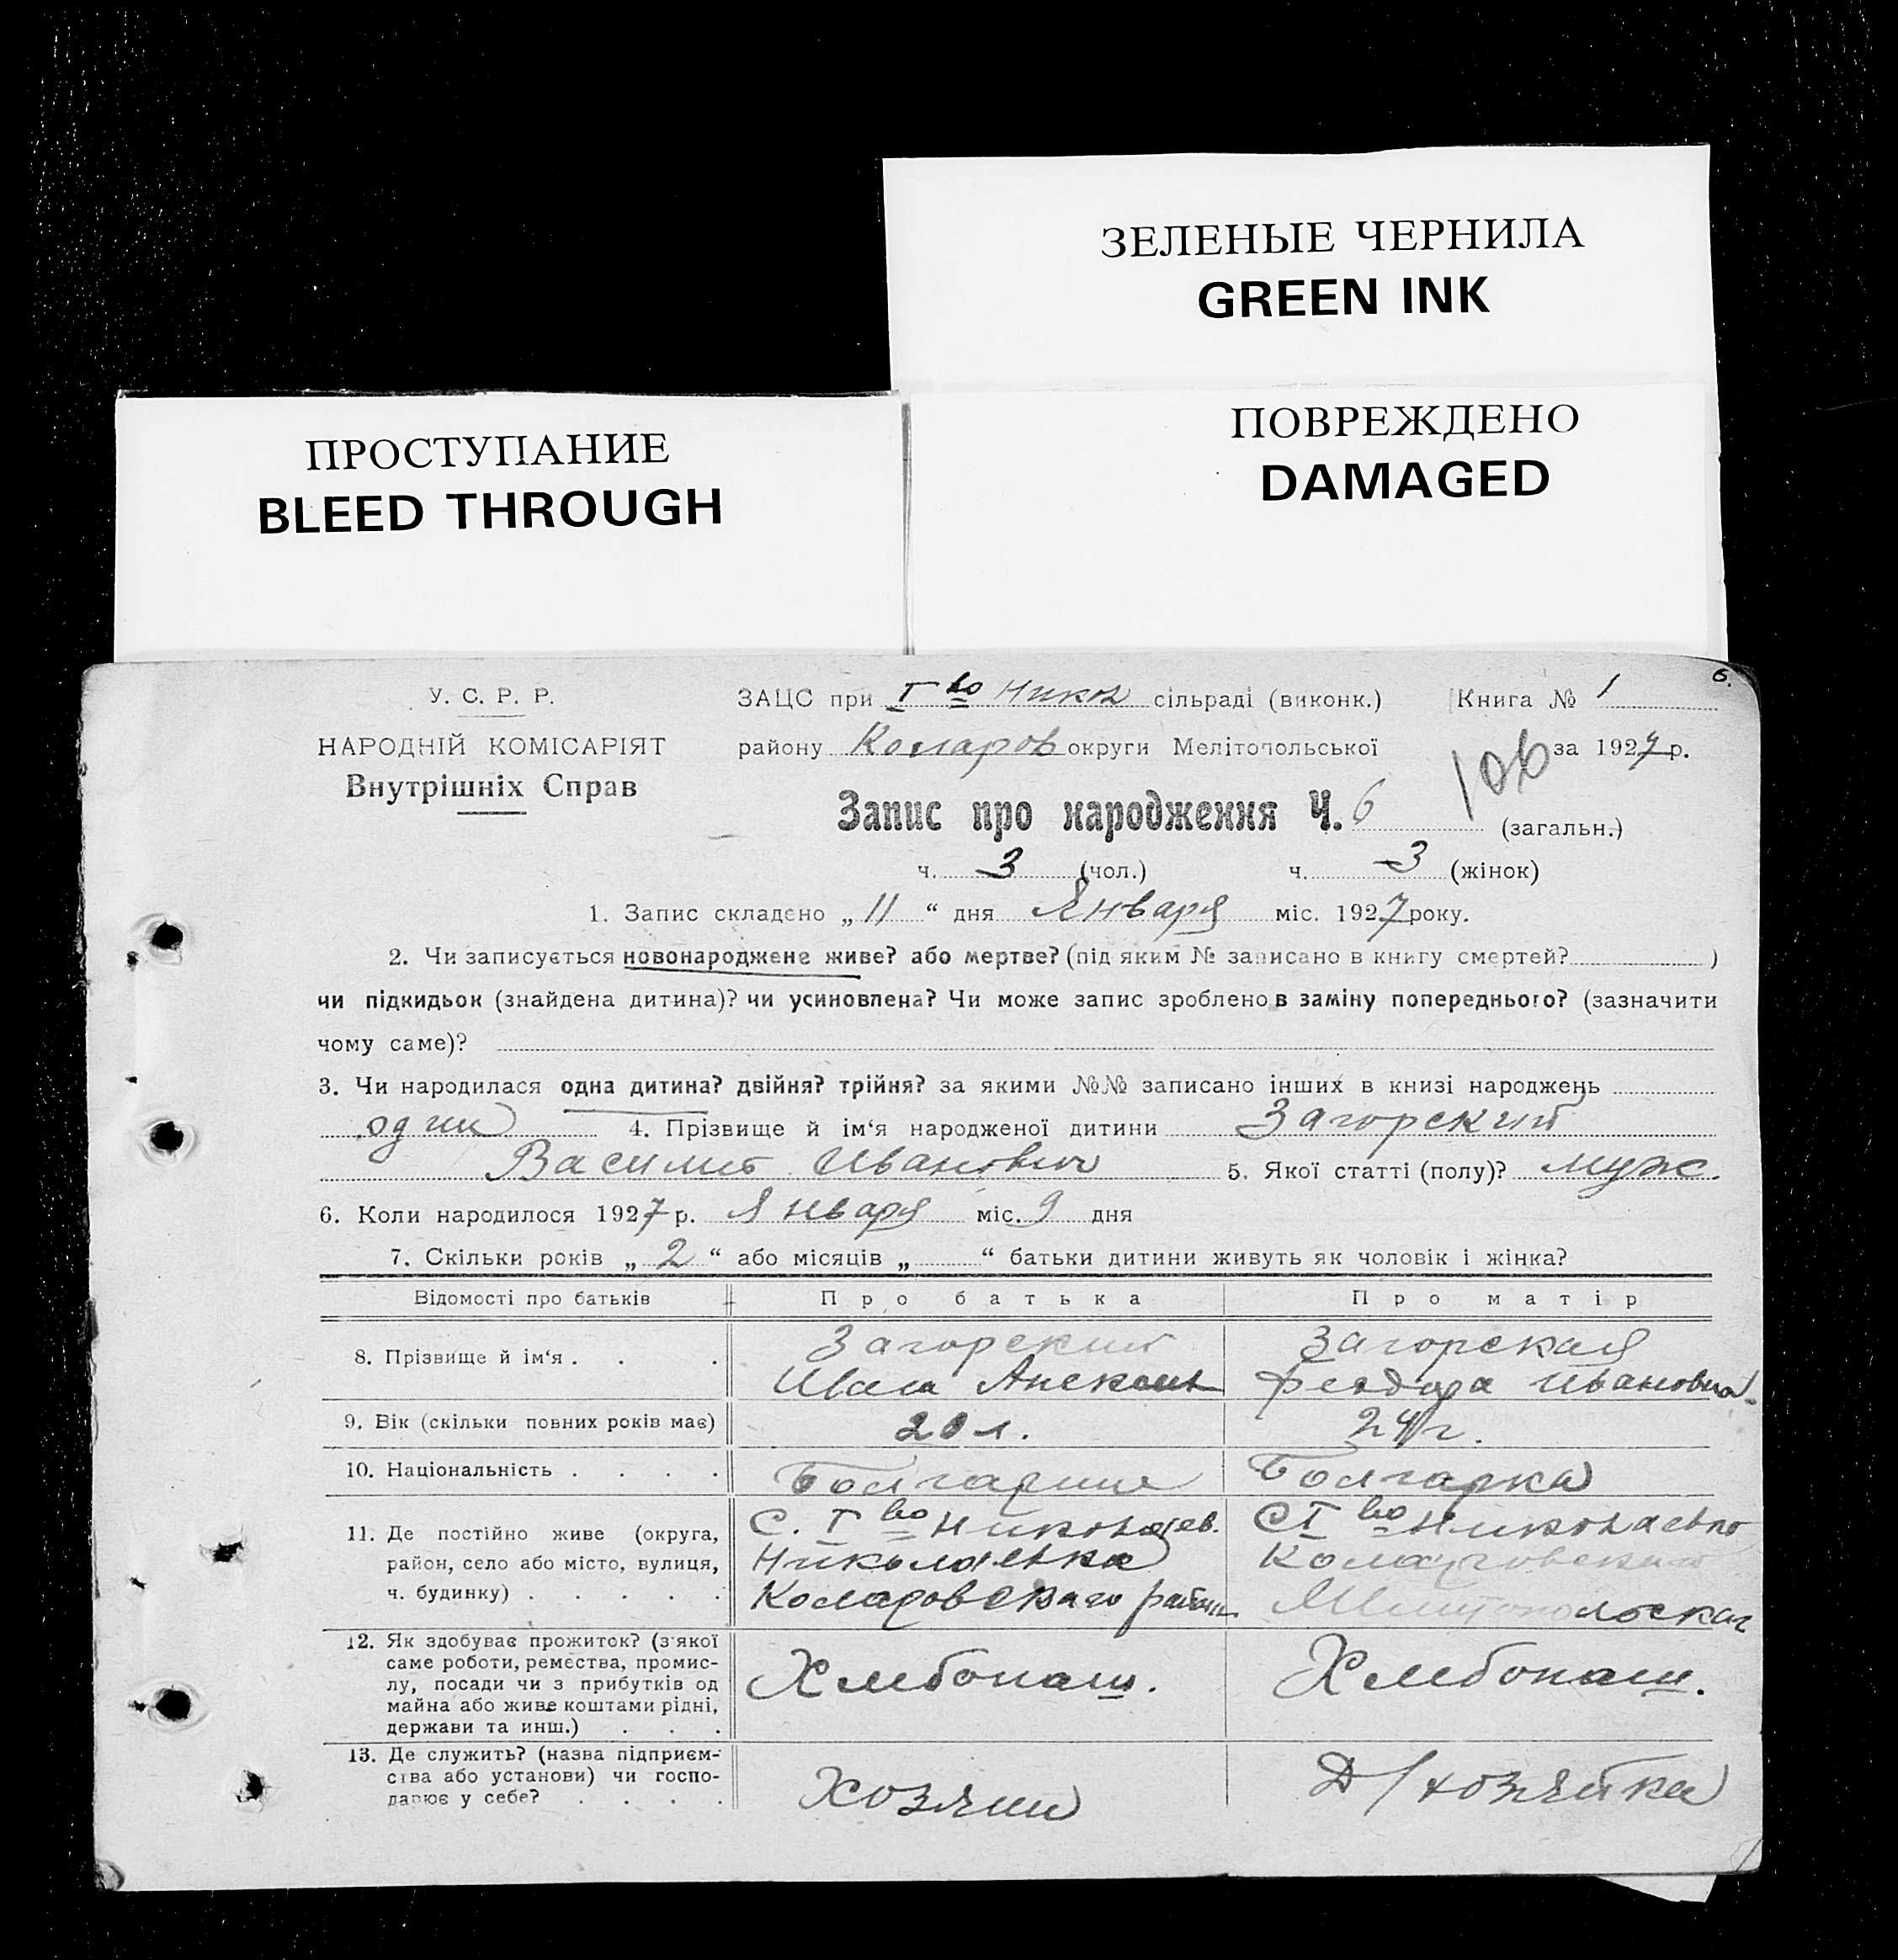 ЗЕЛЕНЫЕ ЧЕРНИЛА
GREEN INK
ПРОСТУПАНИЕ
BLEED THROUGH
ПОВРЕЖДЕНО
DAMAGED
6.
У. С. Р. Р.
НАРОДНІЙ КОМІСАРІЯТ
Внутрішніх Справ
ЗАЦС при І во Никол сільраді (виконк.) Книга № 1
району Коларов округи Мелітопольської за 1927 р.
106
Запис про народження Ч. 6 (загальн.)
ч. 3 (чол.) ч. 3 (жінок)
1. Запис складено „ 11 “ дня Января міс. 1927 року.
2. Чи записується новонароджене живе? або мертве? (під яким № записано в книгу смертей? )
чи підкидьок (знайдена дитина)? чи усиновлена? Чи може запис зроблено в заміну попереднього? (зазначити
чому саме)?
3. Чи народилася одна дитина? двійня? трійня? за якими №№ записано інших в книзі народжень
один 4. Прізвище й ім‘я народженої дитини Загорский
Василий Иванович 5. Якої статті (полу)? муж.
6. Коли народилося 1927 р. Января міс. 9 дня
7. Скільки років „ 2 “ або місяців „ “ батьки дитини живуть як чоловік і жінка?
Відомості про батьків Про батька Про матір
8. Прізвище й ім‘я . . . Загорский Загорская
Иван Феодора Ивановна
9. Вік (скільки повних років має) 20 л. 24 г.
10. Національність . . . . Болгарин Болгарка
11. Де постійно живе (округа, С. І во Николаев. С І во Николаевка
район, село або місто, вулиця, Николаевка
ч. будинку) . . . . . Коларовскаго района
12. Як здобуває прожиток? (з якої
саме роботи, ремества, промис-
лу, посади чи з прибутків од Хлебопаш. Хлебопаш.
майна або живе коштами рідні,
держави та инш.) . . .
13. Де служить? (назва підприєм-
ства або установи) чи госпо- Хозяин Д/хозяйка
дарює у себе? . . . .